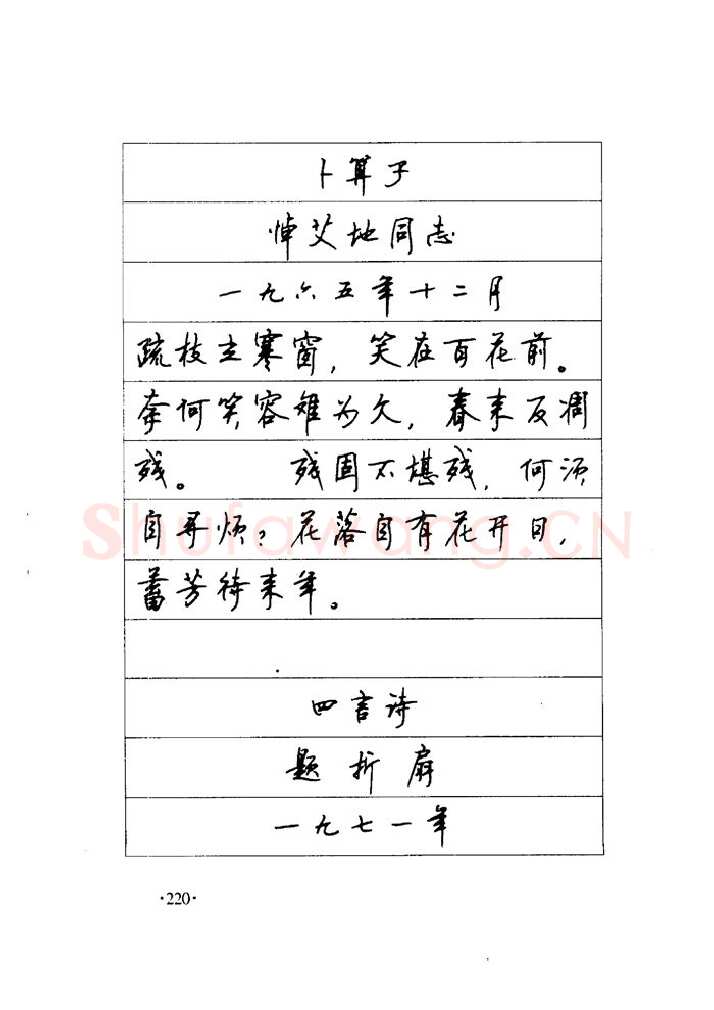 卜算子
悼艾地同志
一九六五年十二月
疏枝立寒窗，笑在百花前。
奈何笑容难为久，春来反凋
残。 残固不堪残，何须
自寻烦？花落自有花开日，
蓄芳待来年。
四言诗
题折扇
一九七一年
·220·
Shufawang.CN